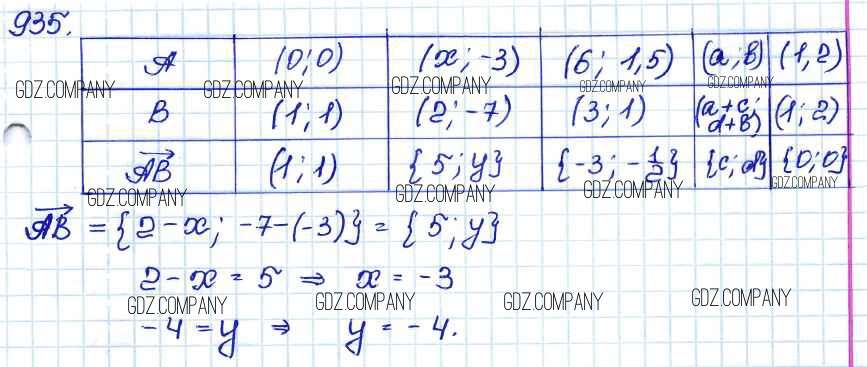 935.
A (0;0) (x; -3) (6; 1,5) (a; b) (1,2)
GDZ.COMPANY GDZ.COMPANY GDZ.COMPANY GDZ.COMPANY GDZ.COMPANY
B (1; 1) (2; -7) (3; 1) (a+c; d+b) (1; 2)
AB (1; 1) {5; y} {-3; -1/2} {c; d} {0; 0}
GDZ.COMPANY GDZ.COMPANY GDZ.COMPANY GDZ.COMPANY
AB = {2-x; -7-(-3)} = {5; y}
2-x = 5 ⇒ x = -3
GDZ.COMPANY GDZ.COMPANY GDZ.COMPANY GDZ.COMPANY
-4 = y ⇒ y = -4.